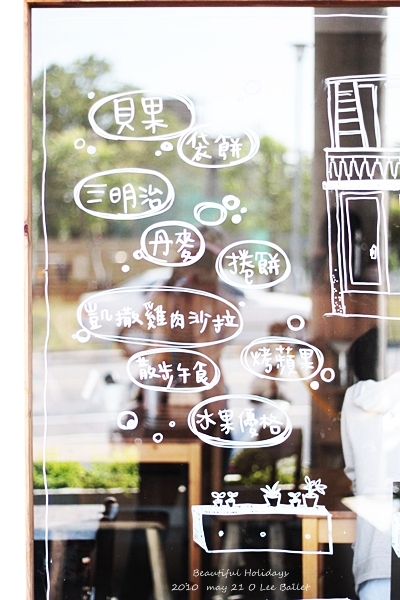 貝果
袋餅
三明治
丹麥
捲餅
凱撒雞肉沙拉
烤蘋果
散步午食
水果優格
Beautiful Holidays
2010 may 21 O Lee Ballet